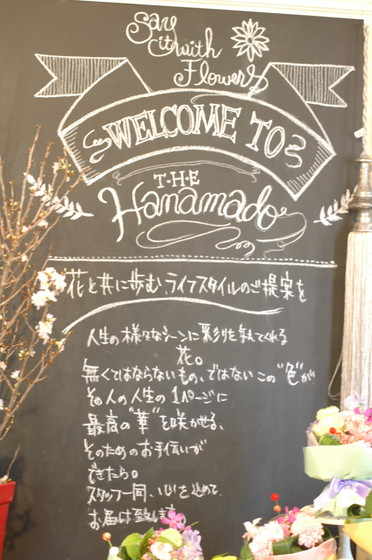 Say
it with
Flowers
WELCOME TO
THE
Hanamado
花と共に歩む、ライフスタイルのご提案を
人生の様々なシーンに彩りを与えてくれる
花。
無くてはならないもの、ではないこの"色"が
その人の人生の1ページに
最高の"華"を咲かせる、
そのためのお手伝いが
できたら。
スタッフ一同、心を込めて
お届け致します